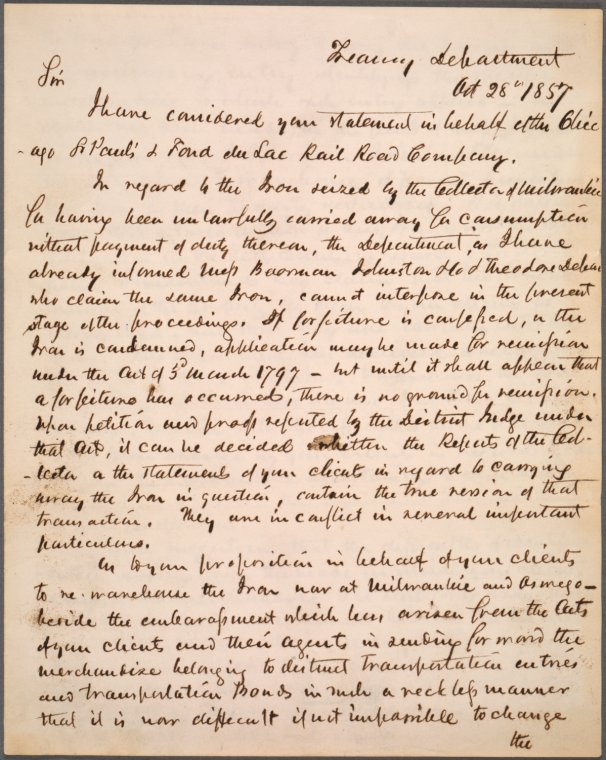 Treasury Department
Oct 28th 1857
Sir
I have considered your statement in behalf of the Chic
-ago St Paul's & Fond du Lac Rail Road Company.
In regard to the Iron seized by the Collector of Milwaukie
for having been unlawfully carried away for consumption
without payment of duty thereon, the Department, as I have
already informed Mess Boorman Johnston & Co & Theodore Dehon
who claim the same Iron, cannot interpose in the present
stage of the proceedings. If forfeiture is confessed, or the
Iron is condemned, application may be made for remission
under the Act of 3d March 1797 - but until it shall appear that
a forfeiture has occurred, there is no ground for remission.
Upon petition and proofs reported by the District Judge under
that Act, it can be decided whether the Reports of the Col-
-lector or the statements of your clients in regard to carrying
away the Iron in question, contain the true version of that
transaction. They are in conflict in several important
particulars.
As to your proposition in behalf of your clients
to re-warehouse the Iron now at Milwaukie and Oswego -
beside the embarrassment which has arisen from the Acts
of your clients and their agents in sending forward the
merchandize belonging to distinct transportation entries
and transportation Bonds in such a reckless manner
that it is now difficult if not impossible to change
the